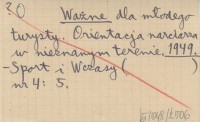 ? O
Ważne dla młodego
turysty. Orientacja narciarza
w nieznanym terenie. 1949.
- Sport i Wczasy (          )
nr 4: 5.